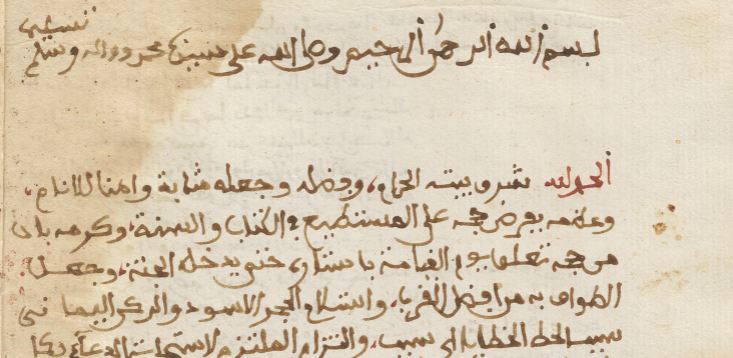 بسم الله الرحمن الرحيم وصلى الله على سيدنا محمد وءاله وسلم تسليما
الحمد لله شرف بيته الحرام، وفضله وجعله مثابة وامنا للانام،
بفرض حجه على المستطيع في الكتاب والسنة، وكرمه بان
من حجه تعلق يوم القيامة باستاره حتى يدخله الجنة، وجعل
الطواف به من افضل القربا، واستلام الحجر الاسود والركن اليماني
سببا لحط الخطايا والتزام الملتزم لاستجابة الدعاء